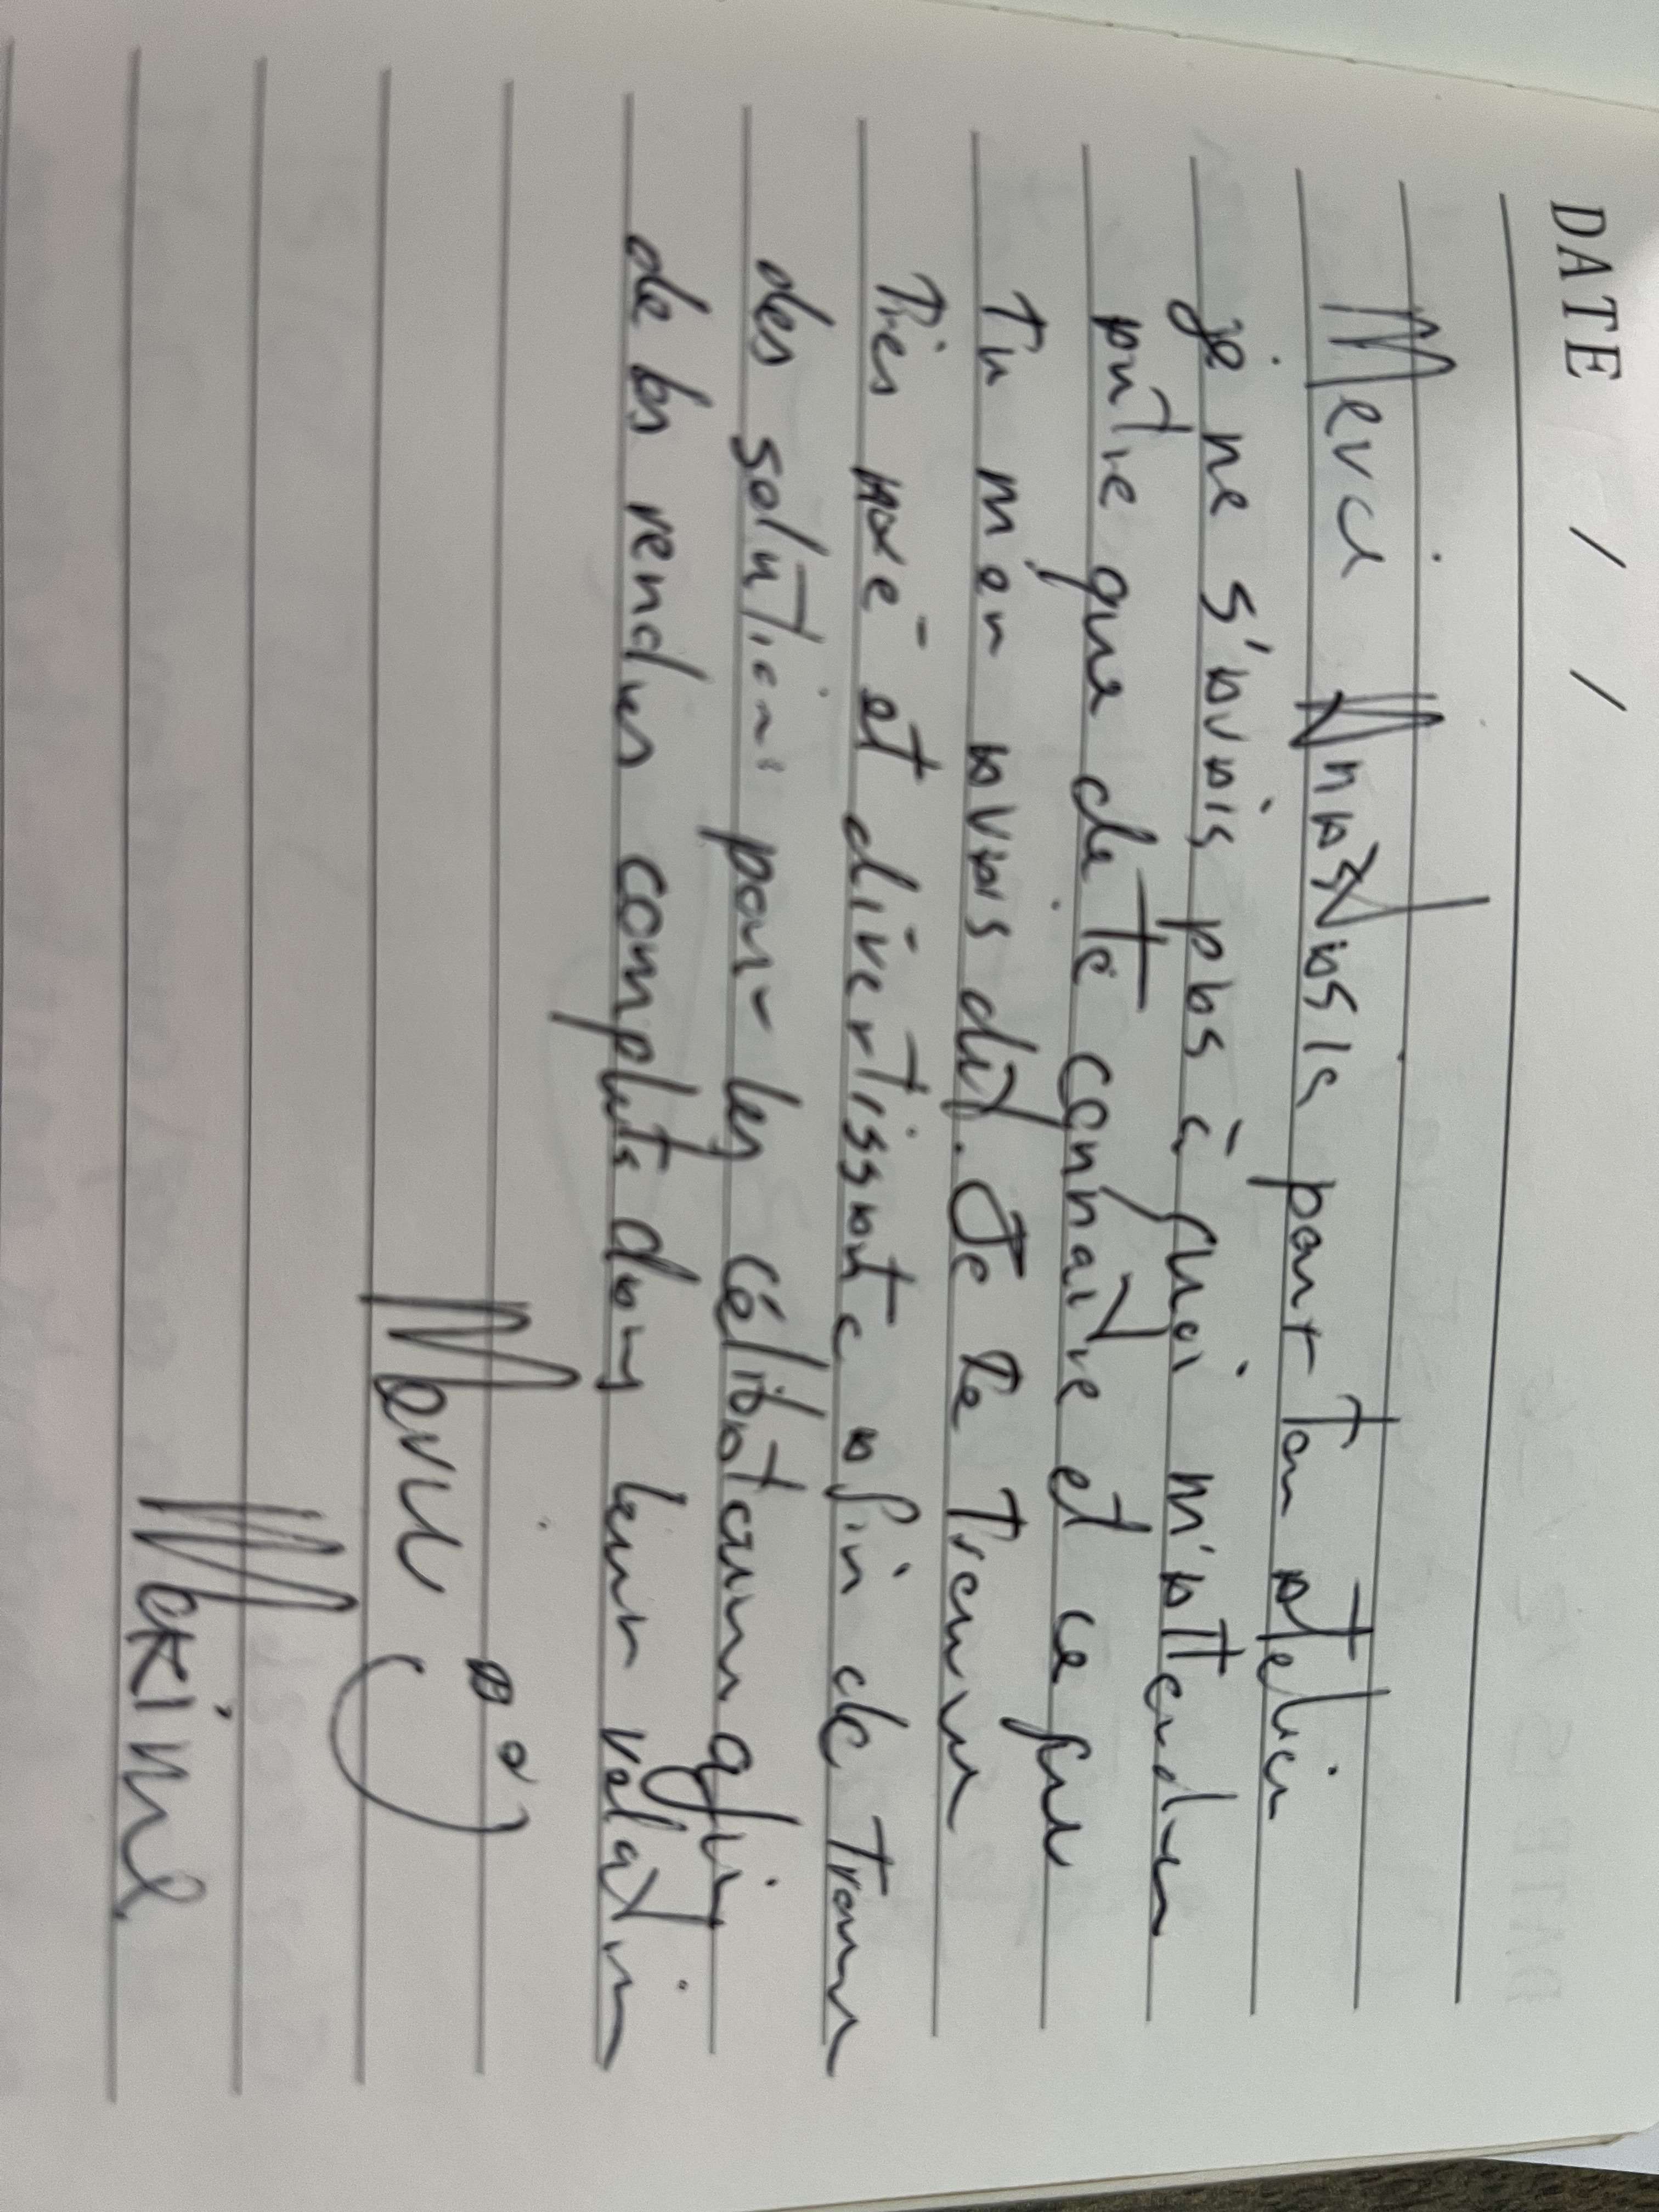 DATE / /
Merci pour ton atelier
je ne s'avais pas à quoi m'attendre
autre que de te connaitre et ce que
Tu m'en avais dit. Je te Trouve
Très et divertissante afin de Trouver
des solutions pour les célibataires
de les rendres complets dans leur relation
Merci
Maxime